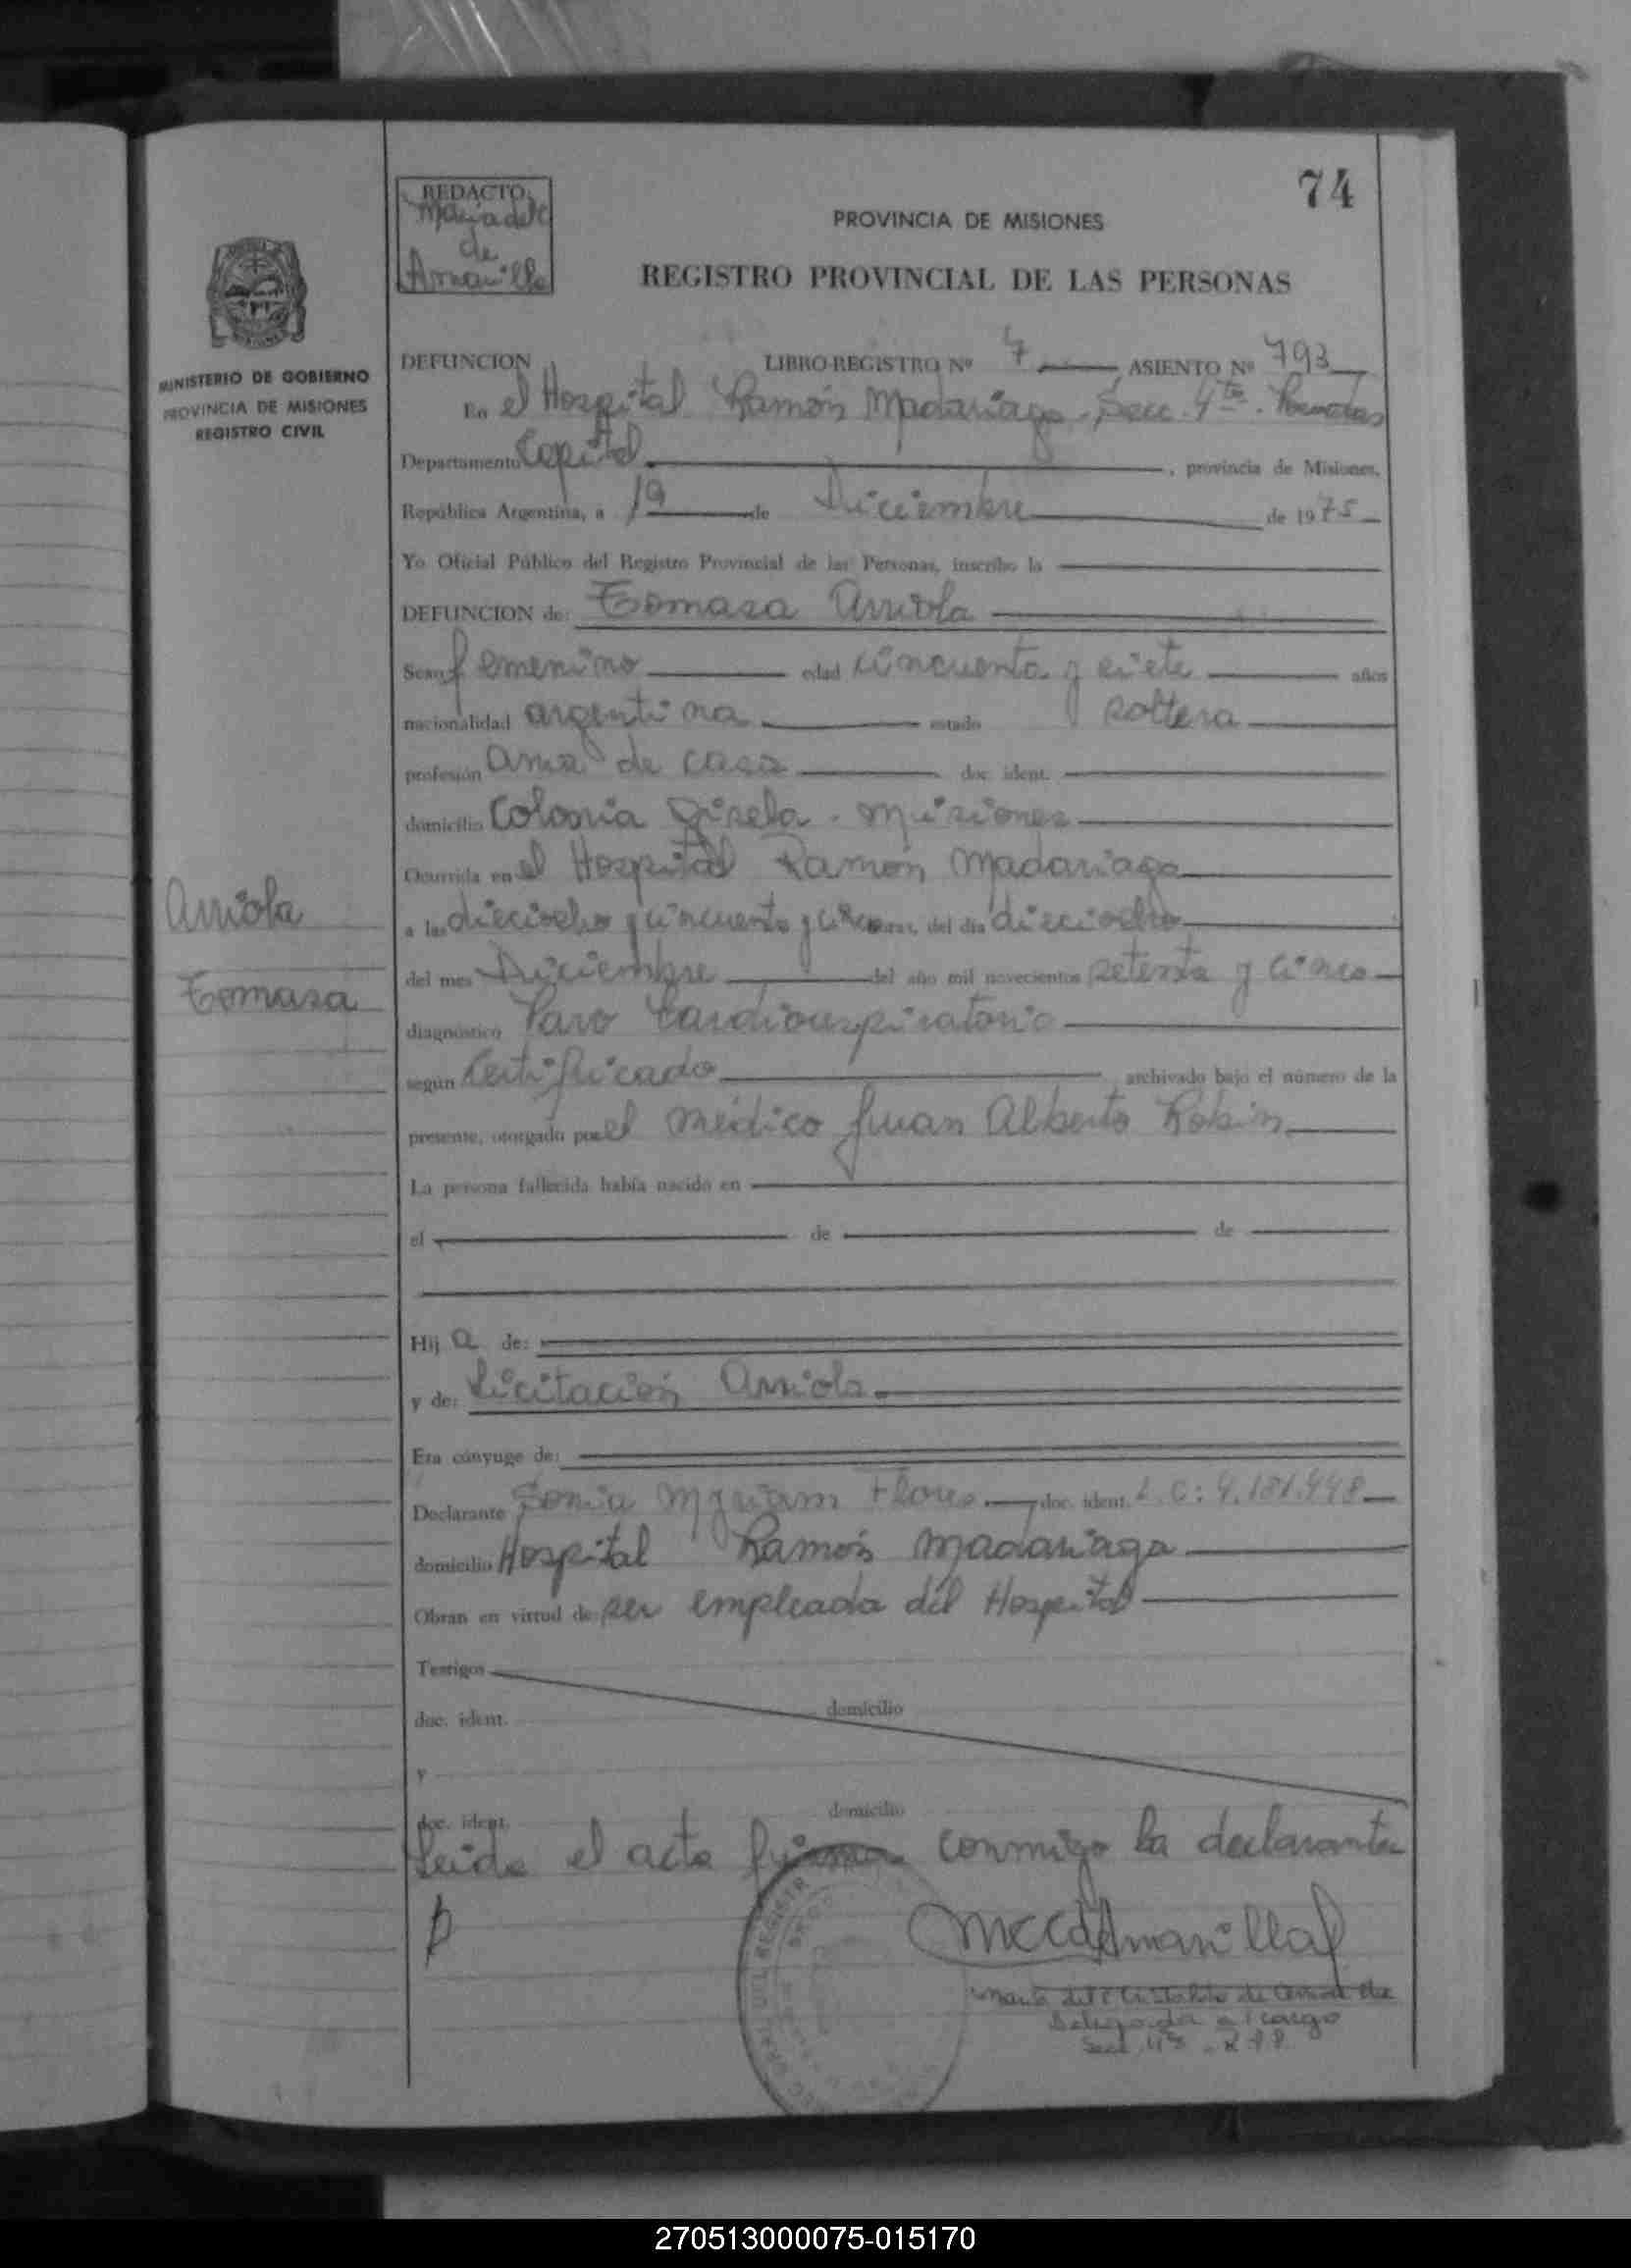 74
REDACTO
María del C
de
Amarilla
PROVINCIA DE MISIONES
REGISTRO PROVINCIAL DE LAS PERSONAS
MINISTERIO DE GOBIERNO
PROVINCIA DE MISIONES
REGISTRO CIVIL
DEFUNCION LIBRO-REGISTRO Nº 7 ASIENTO Nº 793
En el Hospital Ramón Madariaga - Secc. 4ta. Posadas
Departamento Capital, provincia de Misiones,
República Argentina, a 19 de Diciembre de 1975
Yo Oficial Público del Registro Provincial de las Personas, inscribo la
DEFUNCION de: Tomasa Arriola
Sexo femenino edad cincuenta y siete años
nacionalidad argentina estado soltera
profesión ama de casa doc. ident.
domicilio Colonia Gisela - Misiones
Ocurrida en el Hospital Ramón Madariaga
a las dieciocho y cincuenta y cinco horas, del día dieciocho
Arriola
del mes Diciembre del año mil novecientos setenta y cinco
Tomasa
diagnóstico Paro Cardiorespiratorio
según Certificado archivado bajo el número de la
presente, otorgado por el médico Juan Alberto Robin
La persona fallecida había nacido en
el de de
Hij a de:
y de: Licitación Arriola
Era cónyuge de:
Declarante Sonia Myriam Flores doc. ident. L.C: 4.181.448
domicilio Hospital Ramón Madariaga
Obran en virtud de ser empleada del Hospital
Testigos
doc. ident. domicilio
y
doc. ident. domicilio
Leida el acta firma conmigo la declarante
MCCdeAmarilla
Delegada a cargo
270513000075-015170